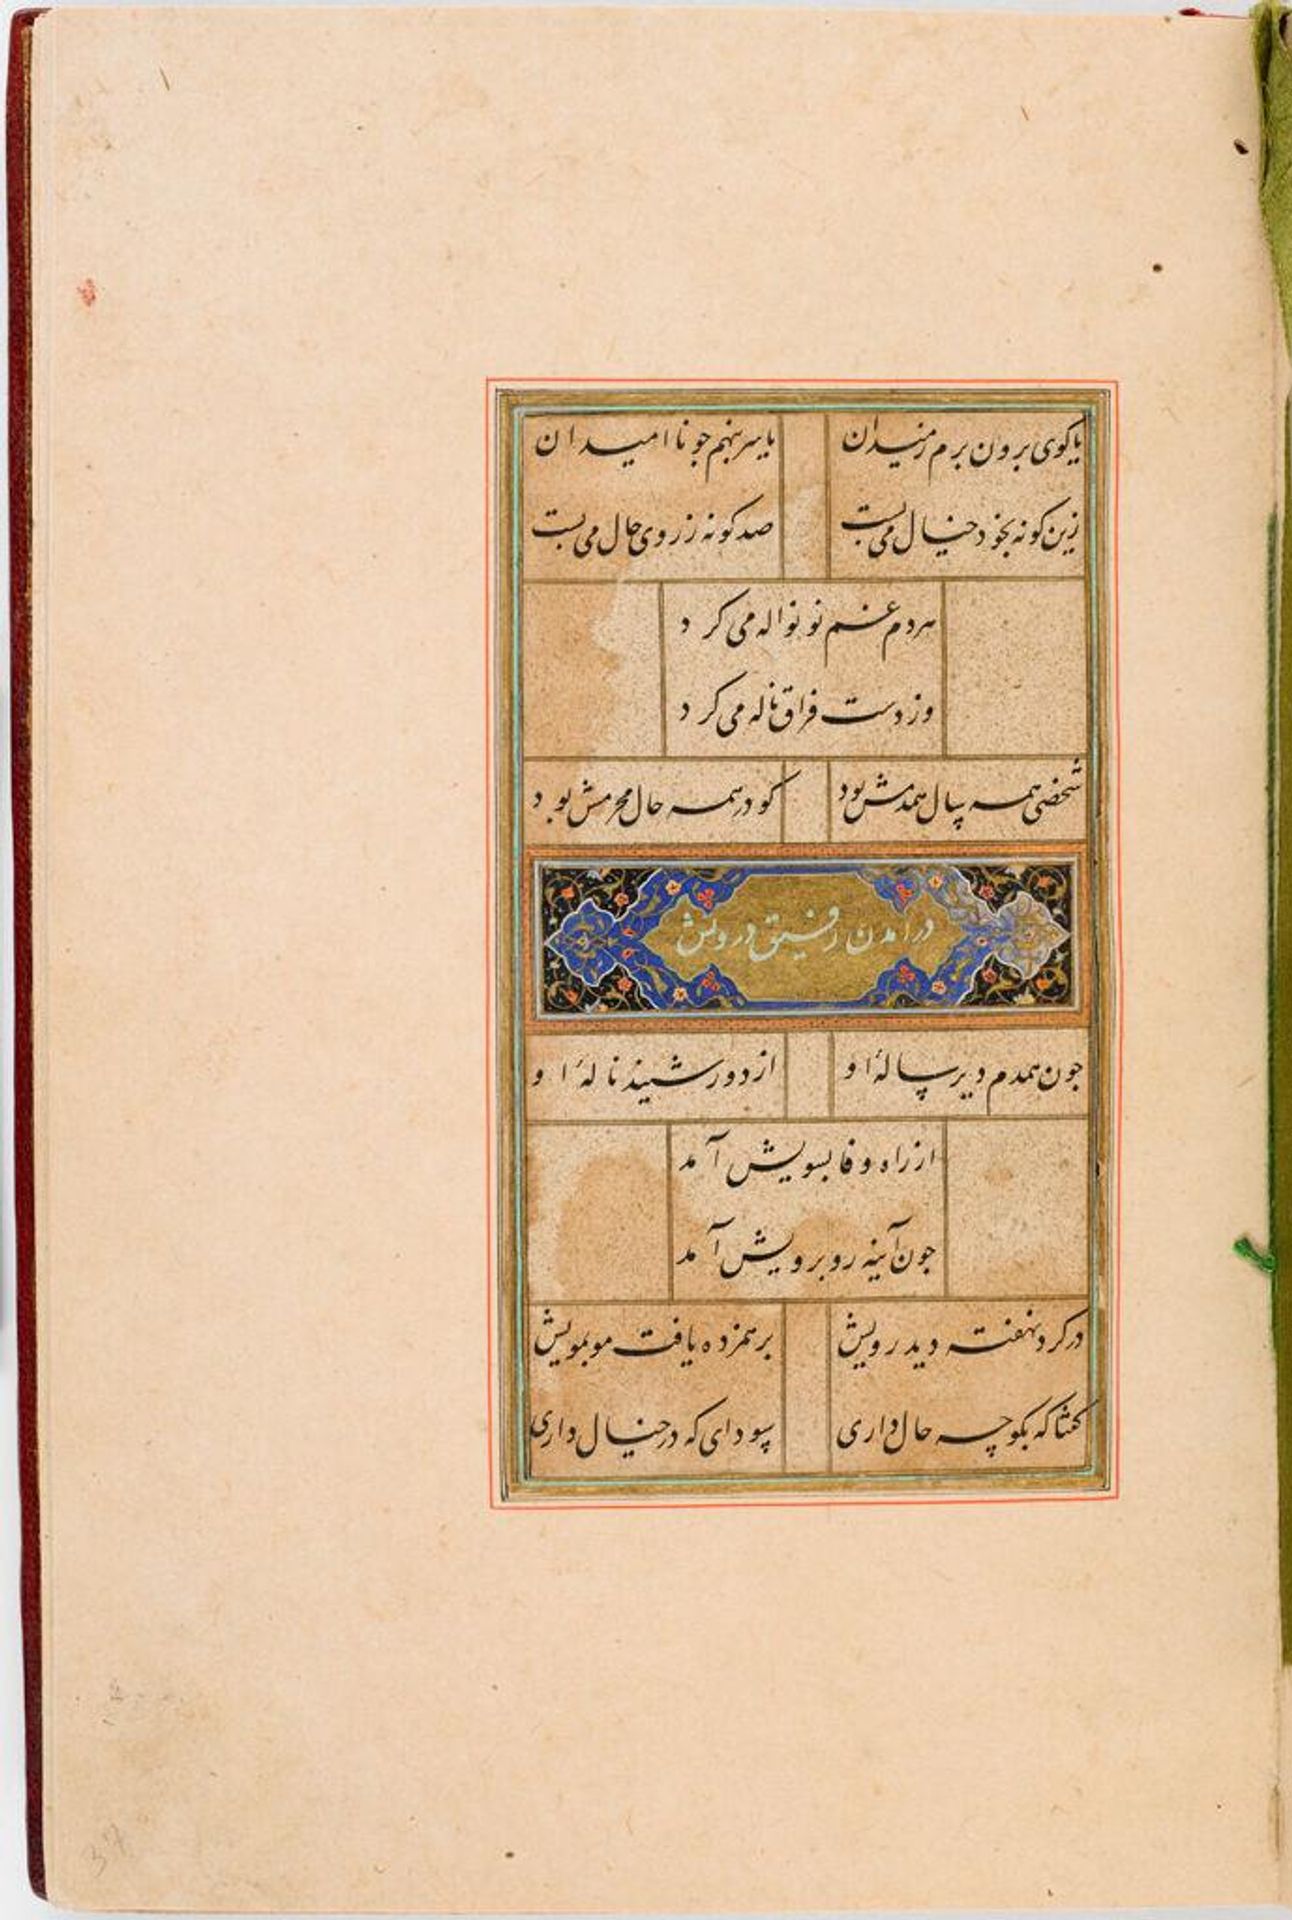 یا کوی برون برم ز میدان
یا سر بنهم جو نا امیدان
زین کونه بخود خیال می بست
صد کونه ز روی حال می بست
هر دم غم نو نواله می کرد
وز دست فراق ناله می کرد
شخصی همه سال همدمش بود
کو در همه حال محرمش بود
در آمدن رفیق درویش
جون همدم دیر ساله او
از دور شنید ناله او
از راه وفا بسویش آمد
جون آینه رو برویش آمد
در کرد نهفته دید رویش
بر همزده یافت مو بمویش
کفتا که بکو چه حال داری
سودای که در خیال داری
37